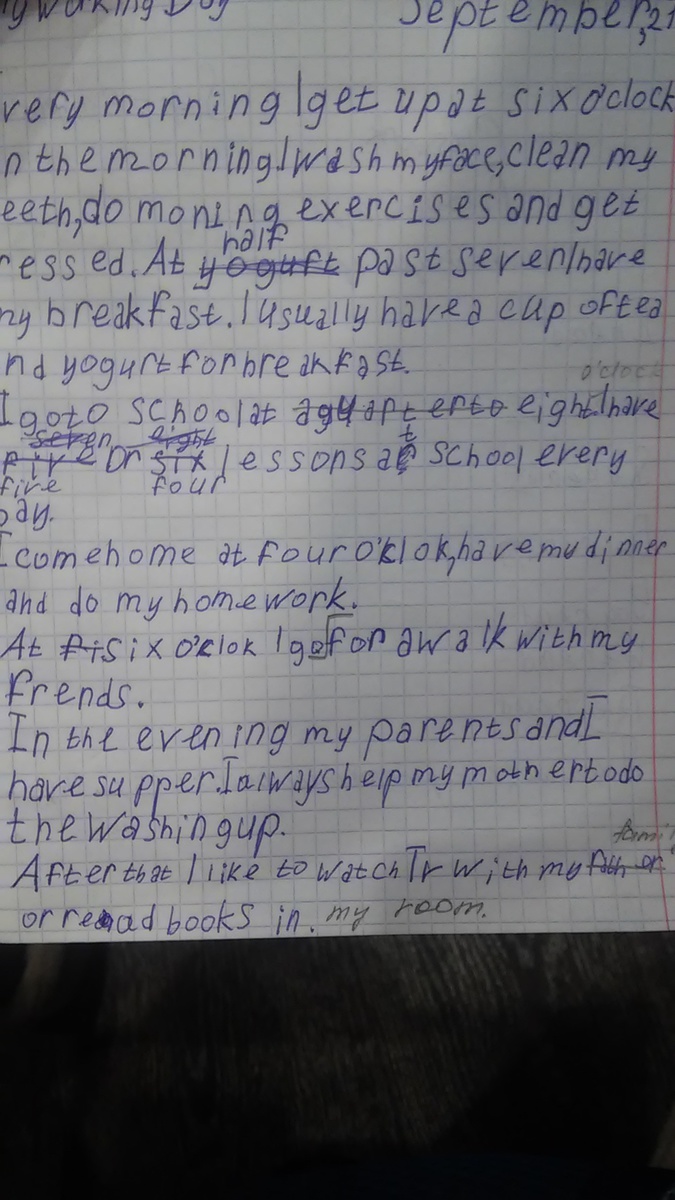 my working Day September, 21
very morning I get up at six o'clock
n the morning I wash my face, clean my
eeth, do moning exercises and get
half
ressed. At yogurt past seven I have
ny breakfast. I usually have a cup of tea
nd yogurt for breakfast.
o'clock
I go to school at a quarter to eight. I have
seven eight t
five or six lessons at school every
five four
Day.
I come home at four o'clok, have my dinner
and do my homework.
At fi six o'clok I go for a walk with my
frends.
In the evening my parents and I
have supper. I always help my mother to do
the washing up.
famil
After that I like to watch Tv with my father
or read books in. my room.